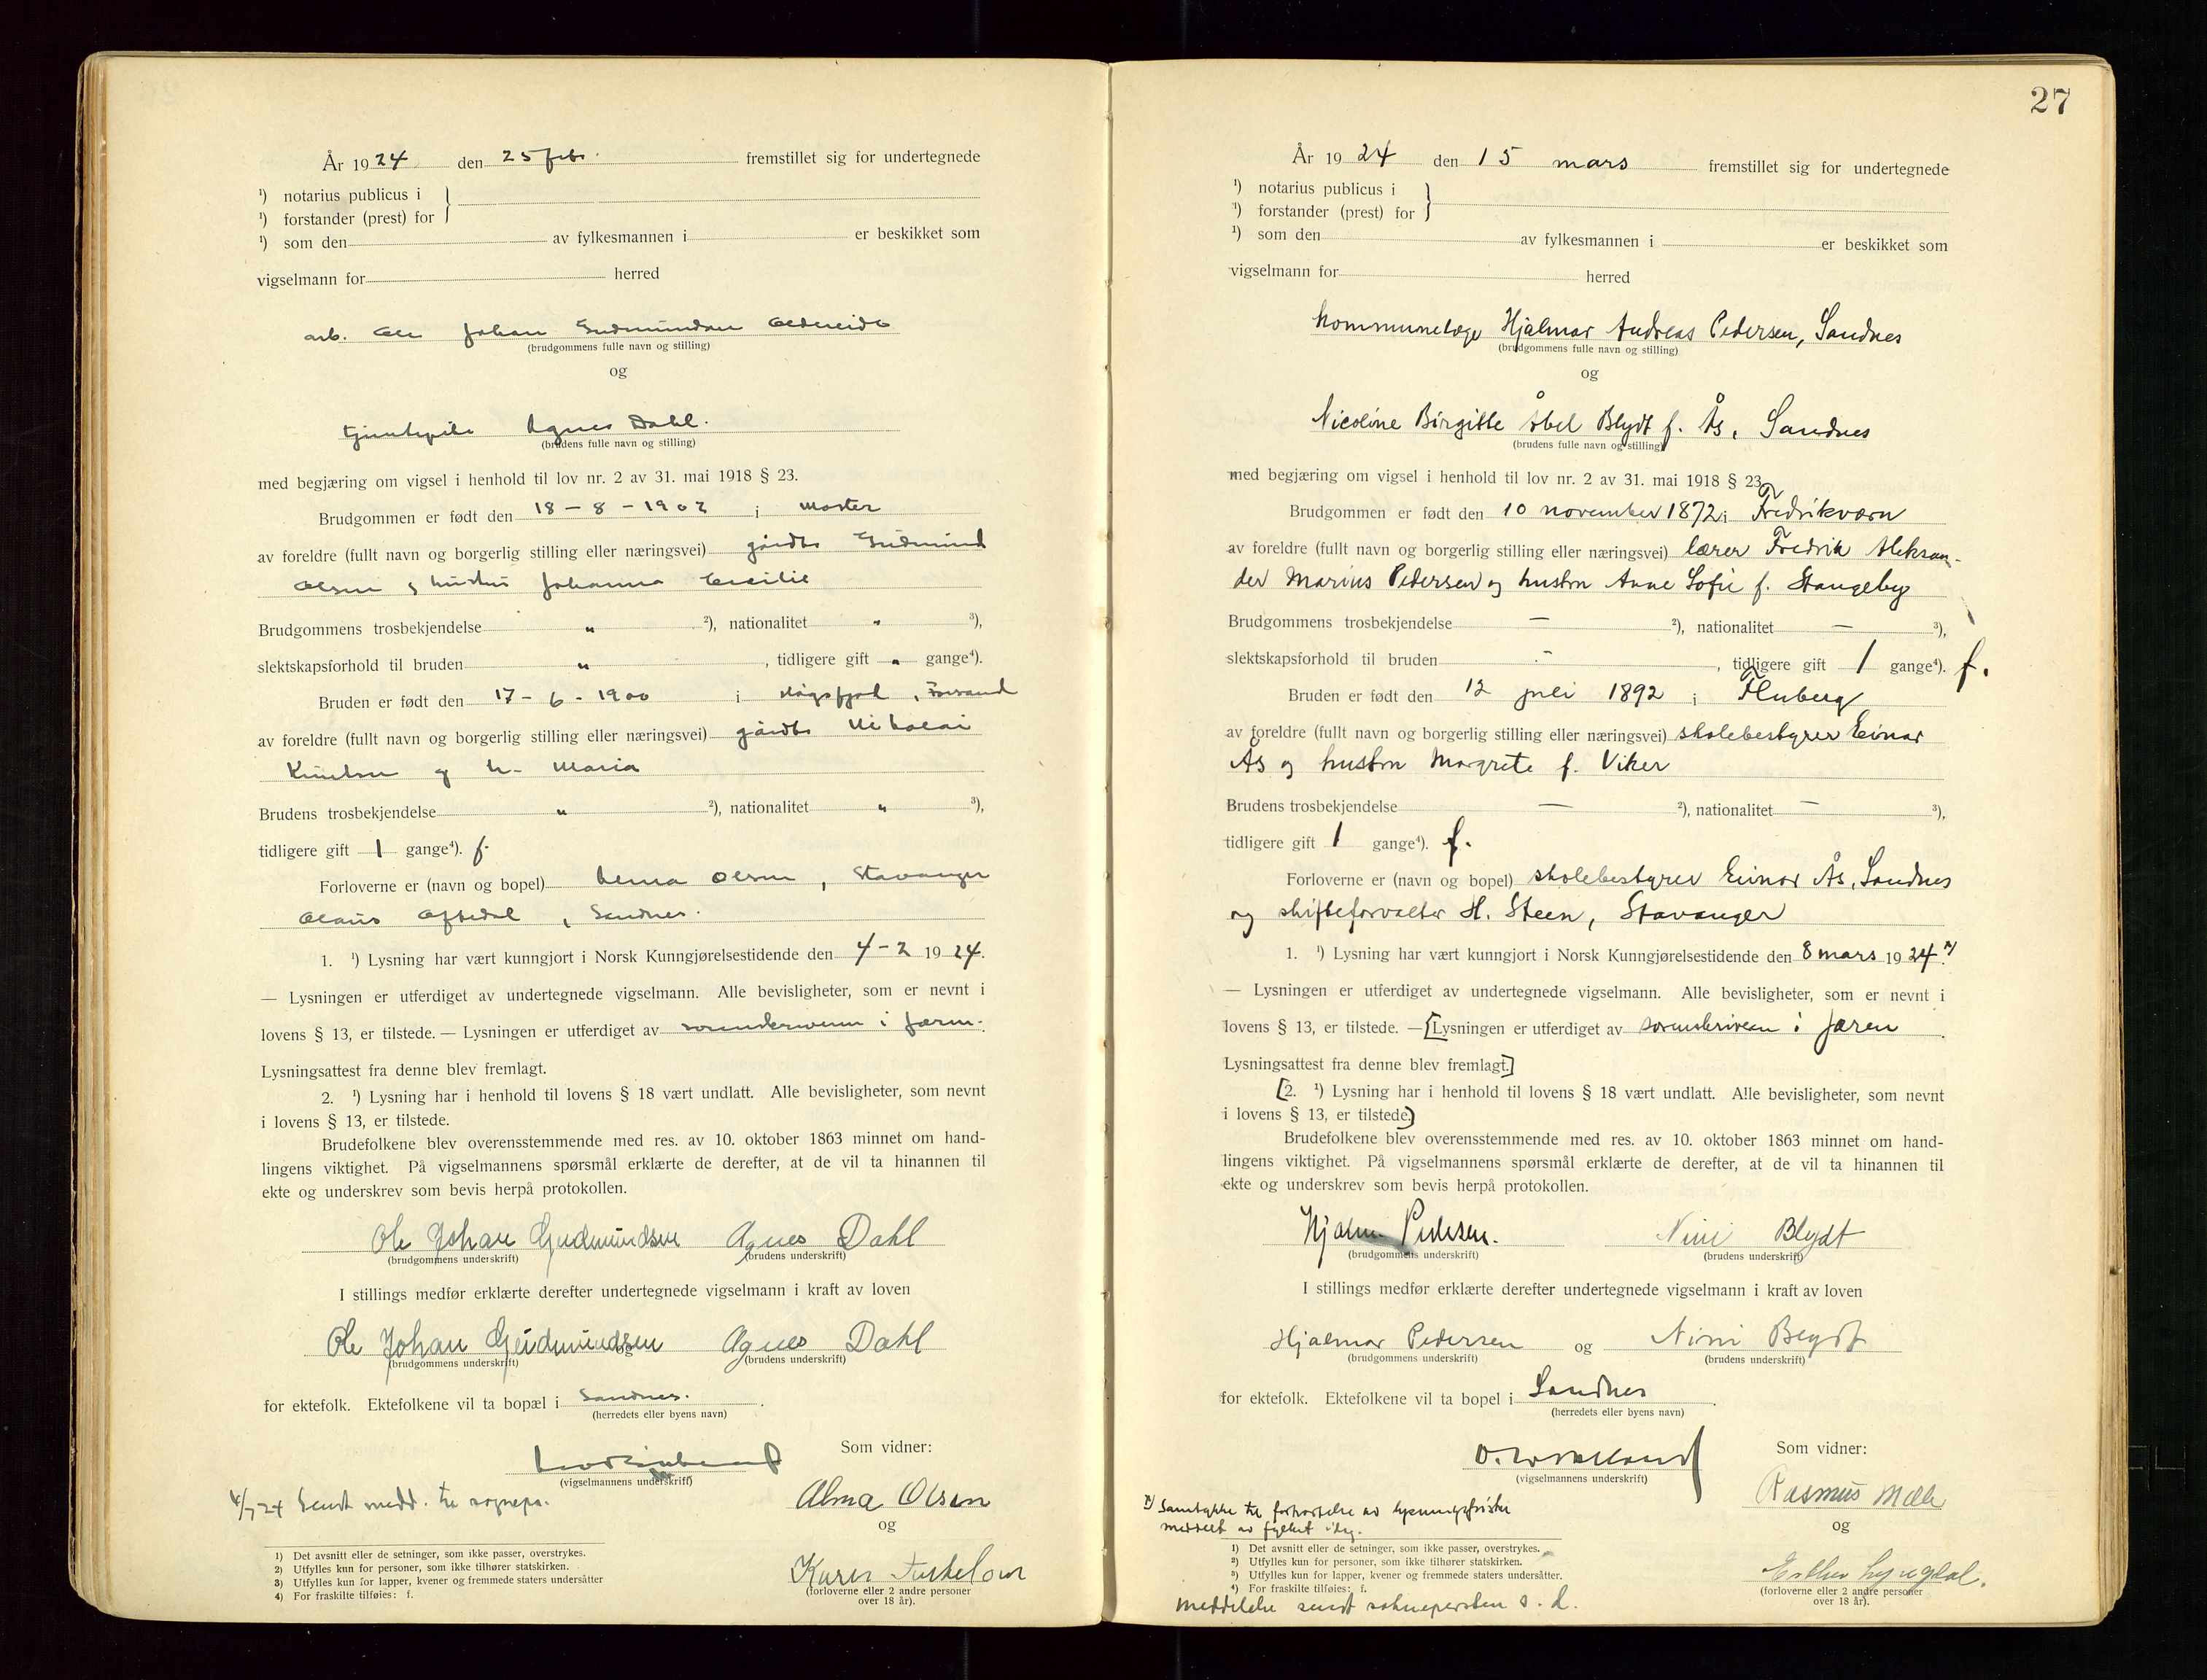 År 1924 den 25 feb. fremstillet sig for undertegnede
¹) notarius publicus i
¹) forstander (prest) for
¹) som den av fylkesmannen i er beskikket som
vigselmann for herred
arb. Ole Johan Gudmundsen
(brudgommens fulle navn og stilling)
og
Agnes Dahl.
(brudens fulle navn og stilling)
med begjæring om vigsel i henhold til lov nr. 2 av 31. mai 1918 § 23.
Brudgommen er født den 18 - 8 - 1902 i Moster
av foreldre (fullt navn og borgerlig stilling eller næringsvei) gårdbr Gudmund
Olsen og hustru Johanna Cecilie
Brudgommens trosbekjendelse " ²), nationalitet " ³),
slektskapsforhold til bruden " , tidligere gift " gange⁴).
Bruden er født den 17 - 6 - 1900 i Høgsfjord, Forsand
av foreldre (fullt navn og borgerlig stilling eller næringsvei) gårdbr Nikolai
Knutsen og h. Maria
Brudens trosbekjendelse " ²), nationalitet " ³),
tidligere gift 1 gange⁴). f.
Forloverne er (navn og bopel) Alma Olsen, Stavanger
Olaus , Sandnes.
1. ¹) Lysning har vært kunngjort i Norsk Kunngjørelsestidende den 4 - 2 1924.
— Lysningen er utferdiget av undertegnede vigselmann. Alle bevisligheter, som er nevnt i
lovens § 13, er tilstede. — Lysningen er utferdiget av sorenskriveren i Jæren.
Lysningsattest fra denne blev fremlagt.
2. ¹) Lysning har i henhold til lovens § 18 vært undlatt. Alle bevisligheter, som nevnt
i lovens § 13, er tilstede.
Brudefolkene blev overensstemmende med res. av 10. oktober 1863 minnet om hand-
lingens viktighet. På vigselmannens spørsmål erklærte de derefter, at de vil ta hinannen til
ekte og underskrev som bevis herpå protokollen.
Ole Johan Gudmundsen Agnes Dahl
(brudgommens underskrift) (brudens underskrift)
I stillings medfør erklærte derefter undertegnede vigselmann i kraft av loven
Ole Johan Gudmundsen og Agnes Dahl
(brudgommens underskrift) (brudens underskrift)
for ektefolk. Ektefolkene vil ta bopæl i Sandnes.
(herredets eller byens navn)
Som vidner:
(vigselmannens underskrift)
Sendt medd. til sognepr.
Alma Olsen
og
Karen
(forloverne eller 2 andre personer
over 18 år).
1) Det avsnitt eller de setninger, som ikke passer, overstrykes.
2) Utfylles kun for personer, som ikke tilhører statskirken.
3) Utfylles kun for lapper, kvener og fremmede staters undersåtter
4) For fraskilte tilføies: f.
27
År 1924 den 15 mars fremstillet sig for undertegnede
¹) notarius publicus i
¹) forstander (prest) for
¹) som den av fylkesmannen i er beskikket som
vigselmann for herred
kommunelæge Hjalmar Andreas Pedersen, Sandnes
(brudgommens fulle navn og stilling)
og
Nicoline Birgitte Abel Blydt f. Ås, Sandnes
(brudens fulle navn og stilling)
med begjæring om vigsel i henhold til lov nr. 2 av 31. mai 1918 § 23.
Brudgommen er født den 10 november 1872 i Fredriksværn
av foreldre (fullt navn og borgerlig stilling eller næringsvei) lærer Fredrik Aleksan-
der Marius Pedersen og hustru Anne Sofie f. Stangeby
Brudgommens trosbekjendelse — ²), nationalitet — ³),
slektskapsforhold til bruden - , tidligere gift 1 gange⁴). f.
Bruden er født den 12 juli 1892 i Fluberg
av foreldre (fullt navn og borgerlig stilling eller næringsvei) skolebestyrer Einar
Ås og hustru Margrete f. Viker
Brudens trosbekjendelse — ²), nationalitet — ³),
tidligere gift 1 gange⁴). f.
Forloverne er (navn og bopel) skolebestyrer Einar Ås, Sandnes
og skifteforvalter H. Steen, Stavanger
1. ¹) Lysning har vært kunngjort i Norsk Kunngjørelsestidende den 8 mars 1924.
— Lysningen er utferdiget av undertegnede vigselmann. Alle bevisligheter, som er nevnt i
lovens § 13, er tilstede. — [Lysningen er utferdiget av sorenskriveren i Jæren
Lysningsattest fra denne blev fremlagt.]
[2. ¹) Lysning har i henhold til lovens § 18 vært undlatt. Alle bevisligheter, som nevnt
i lovens § 13, er tilstede.]
Brudefolkene blev overensstemmende med res. av 10. oktober 1863 minnet om hand-
lingens viktighet. På vigselmannens spørsmål erklærte de derefter, at de vil ta hinannen til
ekte og underskrev som bevis herpå protokollen.
Hjalmar Pedersen. Nini Blydt
(brudgommens underskrift) (brudens underskrift)
I stillings medfør erklærte derefter undertegnede vigselmann i kraft av loven
Hjalmar Pedersen og Nini Blydt
(brudgommens underskrift) (brudens underskrift)
for ektefolk. Ektefolkene vil ta bopel i Sandnes
(herredets eller byens navn)
Som vidner:
(vigselmannens underskrift)
Rasmus Mæle
Samtykke til forkortelse av lysningsfristen
meddelt av fylket idag.
og
1) Det avsnitt eller de setninger, som ikke passer, overstrykes.
2) Utfylles kun for personer, som ikke tilhører statskirken.
3) Utfylles kun for lapper, kvener og fremmede staters undersåtter.
4) For fraskilte tilføies: f.
Esther Lyngdal.
(forloverne eller 2 andre personer
over 18 år).
Meddelelse sendt soknepresten s. d.